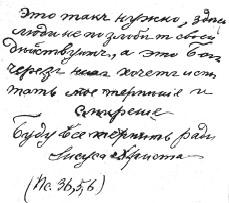 Это такъ нужно, здесь
люди не по злобѣ своей
дѣйствуютъ, а это Богъ
черезъ нихъ хочетъ испы
тать мое терпѣніе и
смиреніе
Буду все терпѣть ради
Іисуса Христа
(Пс. 36,5,6)